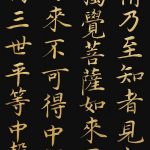 情乃至知者見
獨覺菩薩如來
來不可得中
三世平等中般